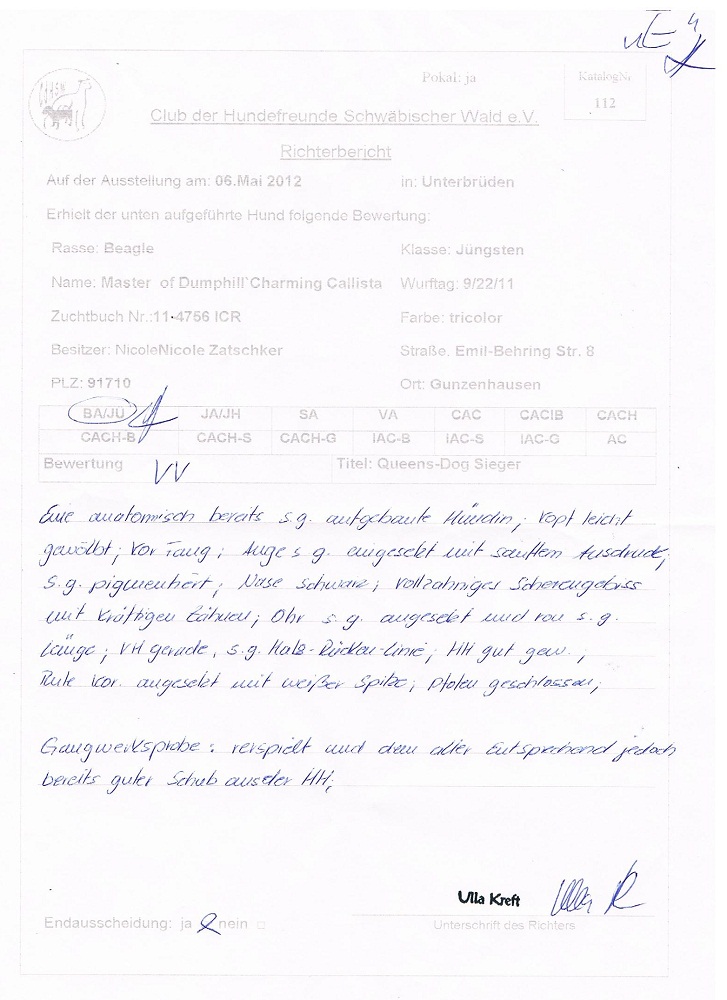 Pokal: ja
KatalogNr
112
Club der Hundefreunde Schwäbischer Wald e.V.
Richterbericht
Auf der Ausstellung am: 06.Mai 2012 in: Unterbrüden
Erhielt der unten aufgeführte Hund folgende Bewertung:
Rasse: Beagle Klasse: Jüngsten
Name: Master of Dumphill`Charming Callista Wurftag: 9/22/11
Zuchtbuch Nr.:11-4766 ICR Farbe: tricolor
Besitzer: NicoleNicole Zatschker Straße. Emil-Behring Str. 8
PLZ: 91710 Ort: Gunzenhausen
BA/JÜ JA/JH SA VA CAC CACIB CACH
CACH-B CACH-S CACH-G IAC-B IAC-S IAC-G AC
Bewertung VV Titel: Queens-Dog Sieger
Eine anatomisch bereits s.g. aufgebaute Hündin; Kopf leicht
gewölbt; Vor Fang; Auge s.g. eingesetzt mit sanftem Ausdruck;
s.g. pigmentiert; Nase schwarz; vollzahniges Scherengebiss
mit kräftigen Zähnen; Ohr s.g. angesetzt und von s.g.
Länge; VH gerade, s.g. Hals-Rücken-Linie; HH gut gew.;
Rute kor. angesetzt mit weißer Spitze; Pfoten geschlossen;
Gangwerksprobe: verspielt und dem alter Entsprechend jedoch
bereits guter Schub aus der HH;
Ulla Kreft
Endausscheidung: ja nein
Unterschrift des Richters